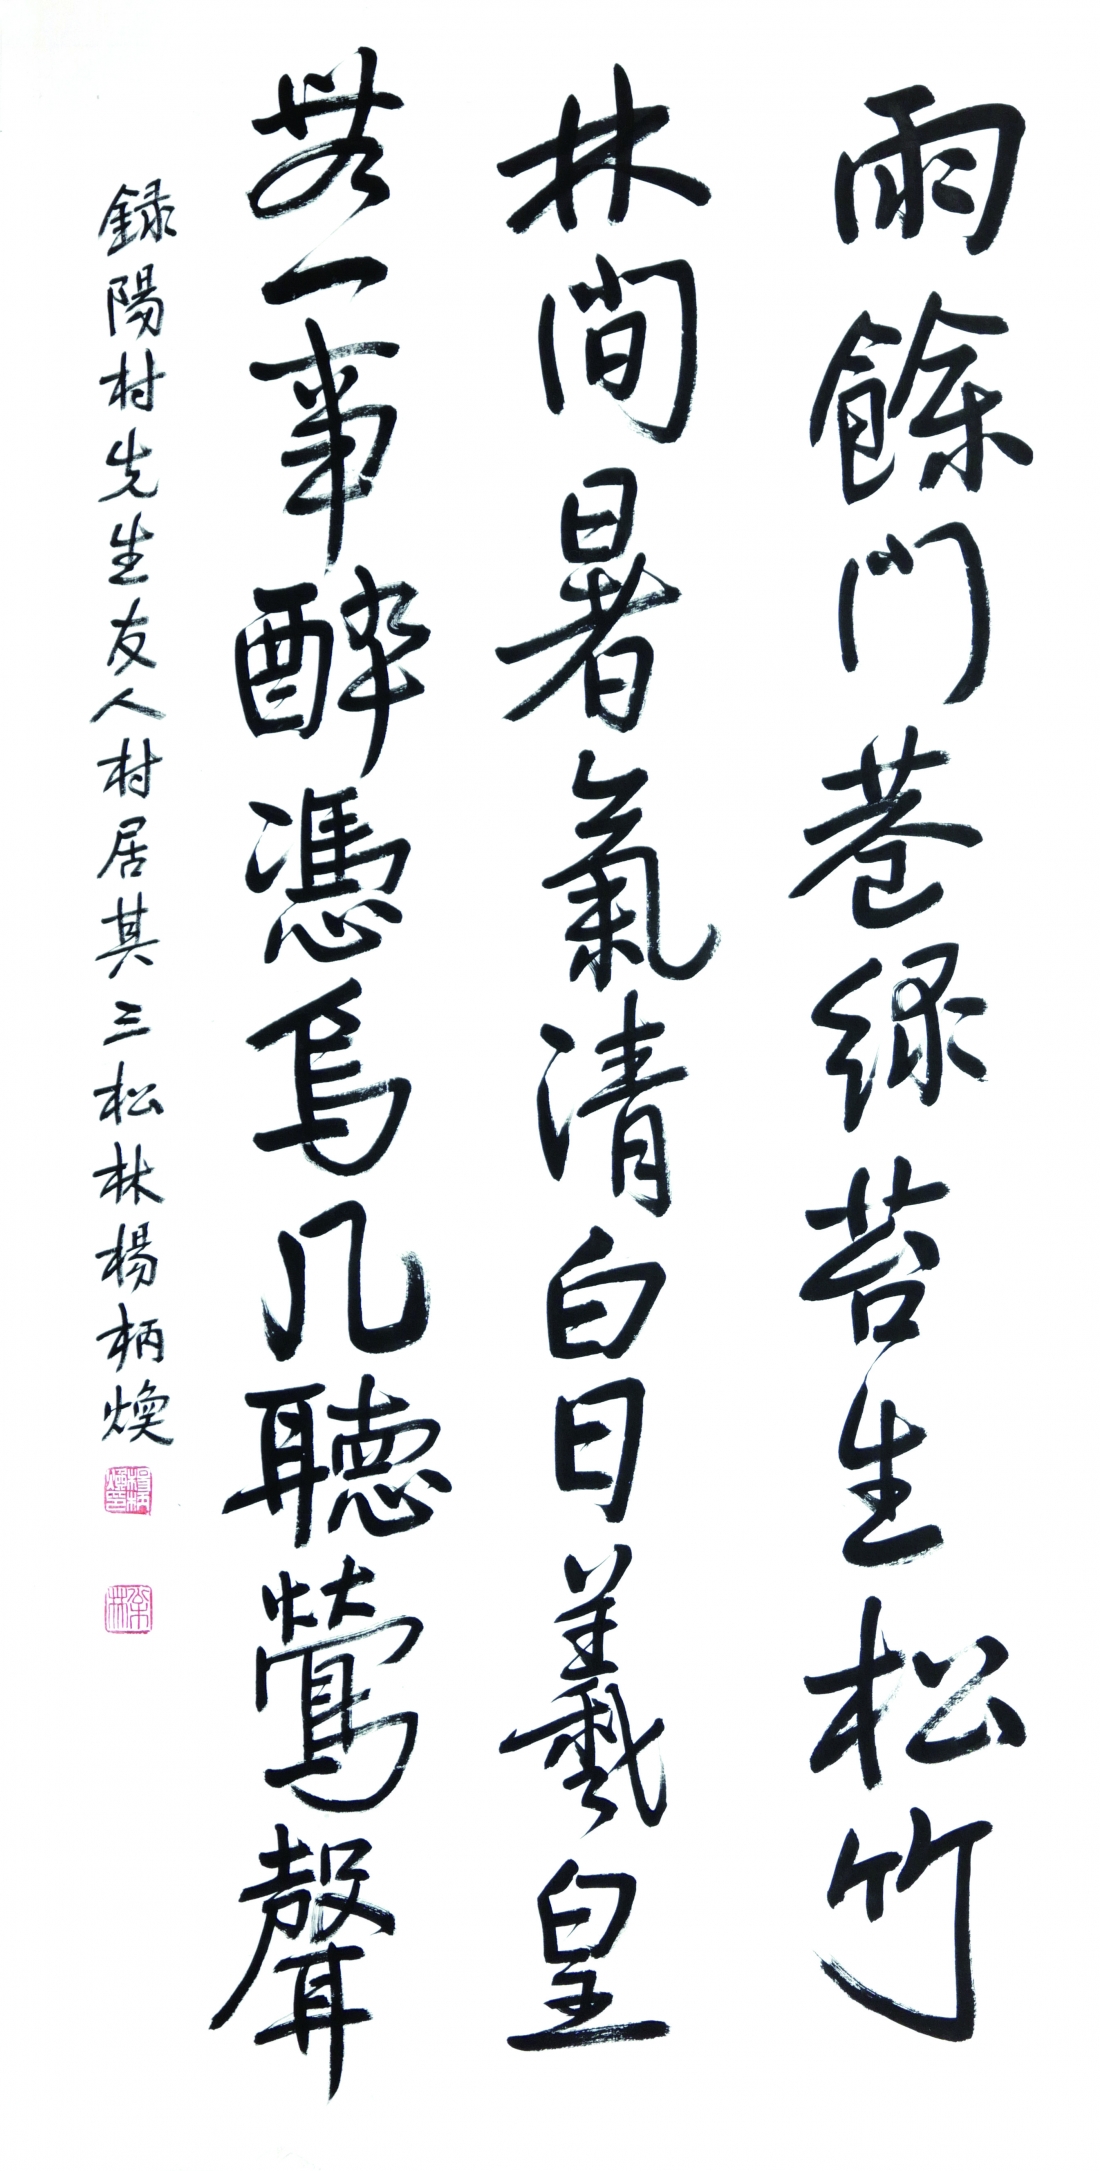 雨餘門巷綠苔生松竹
林間暑氣清白日羲皇
無一事醉憑烏几聽鶯聲
錄陽村先生友人村居其三松林楊柄煥